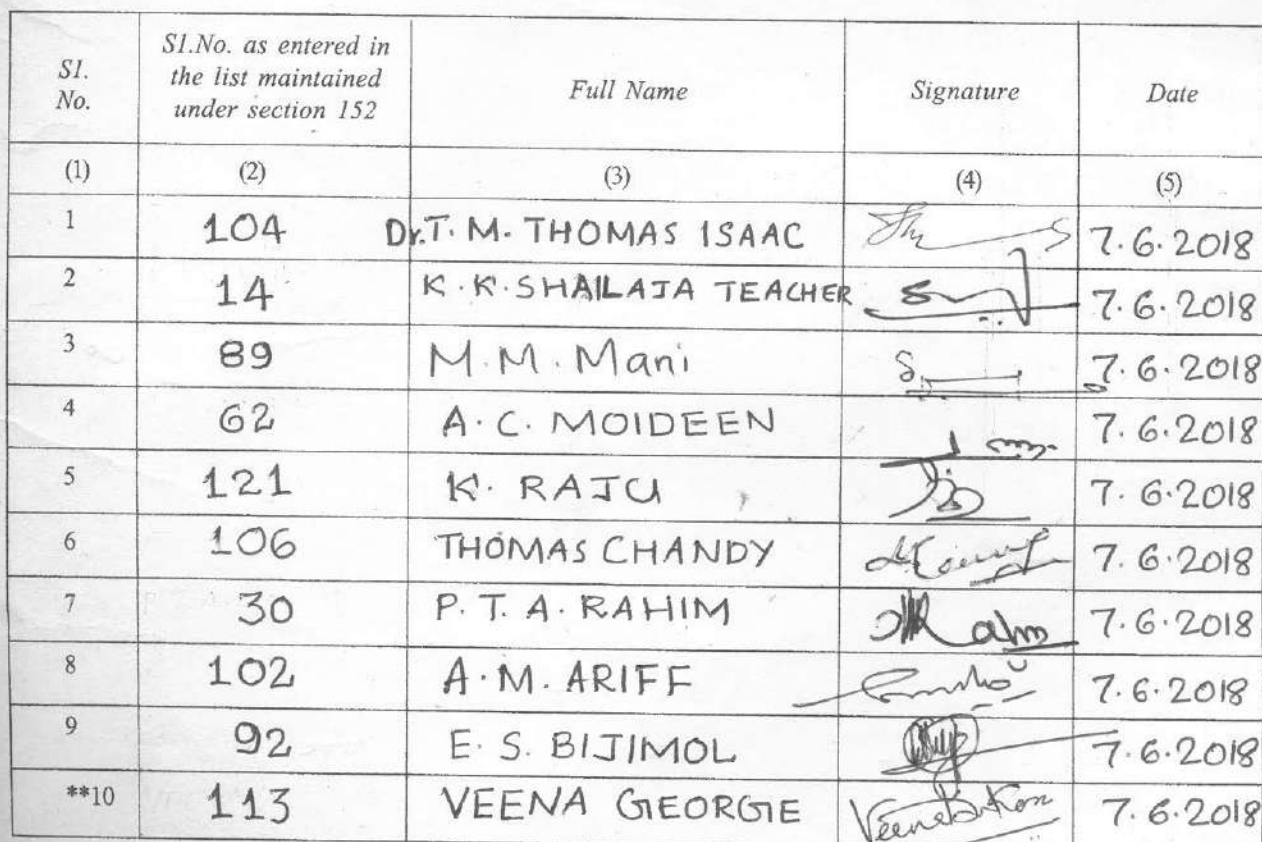 Sl. No. Sl.No. as entered in the list maintained under section 152 Full Name Signature Date
(1) (2) (3) (4) (5)
1 104 Dr.T. M. THOMAS ISAAC 7.6.2018
2 14 K.K.SHAILAJA TEACHER 7.6.2018
3 89 M.M. Mani 7.6.2018
4 62 A.C. MOIDEEN 7.6.2018
5 121 K. RAJU 7.6.2018
6 106 THOMAS CHANDY 7.6.2018
7 30 P.T.A. RAHIM 7.6.2018
8 102 A.M. ARIFF 7.6.2018
9 92 E.S. BIJIMOL 7.6.2018
**10 113 VEENA GEORGE 7.6.2018